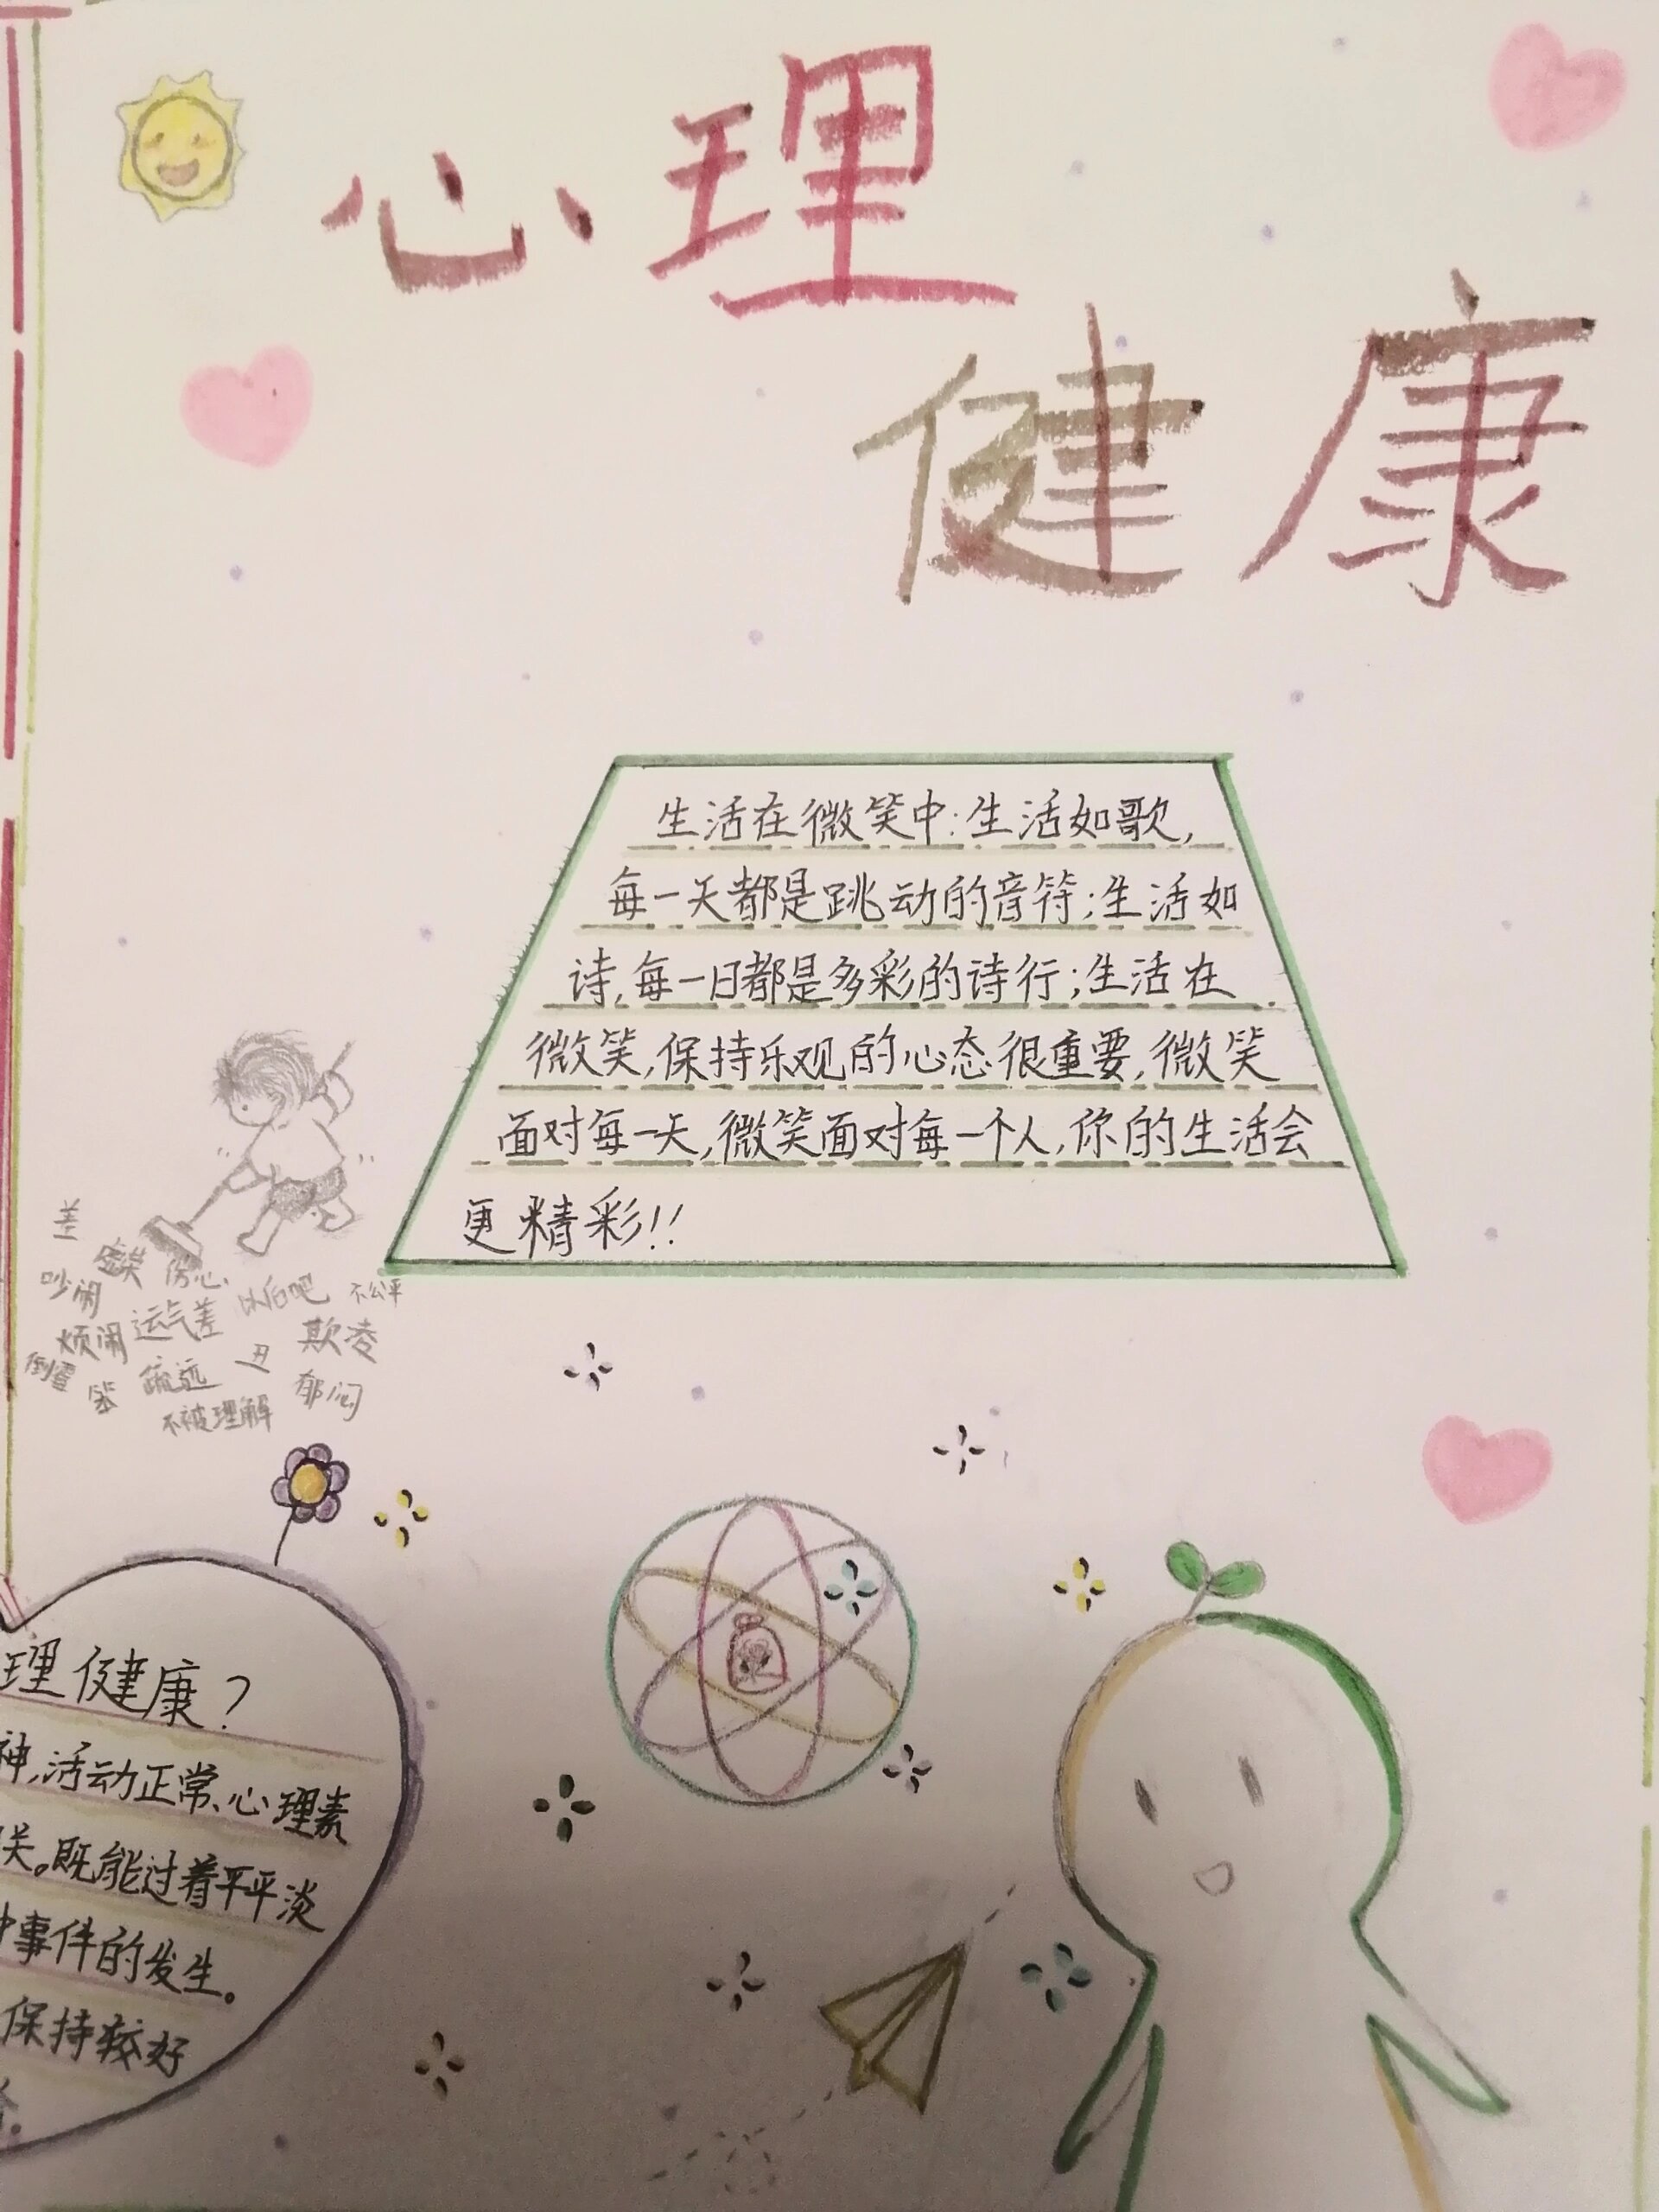 心理
健康
生活在微笑中:生活如歌,
每一天都是跳动的音符;生活如
诗,每一日都是多彩的诗行;生活在
微笑,保持乐观的心态很重要,微笑
面对每一天,微笑面对每一个人,你的生活会
更精彩!!
差
伤心
吵闹
不公平
运气差
欺凌
烦闹
丑
倒霉
笨
疏远
郁闷
不被理解
理健康?
神,活动正常、心理素
关。既能过着平平淡
事件的发生。
保持较好